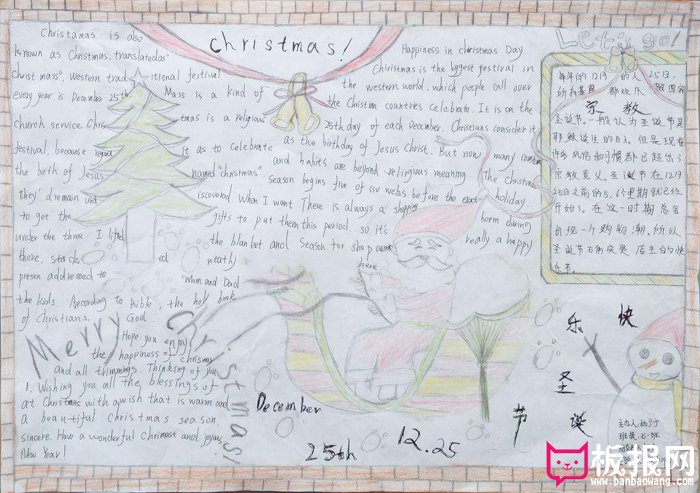 Christmas!
Let's go!
Christamas is also
known as Christmas, translatedas"
Christ mass", Western trad itional festival
every year is December 25th. Mass is a kind of
church service. Christmas is a religious
festival, because regard it as to celebrate
the birth of Jesus named "christmas".
they' d remain und iscovered. When I want
to get the gifts to put them
under the three, I lifted the blanbet and
there, stack ed neatly
presen addressed to "Mum and Dad
the kids. According to Bibb, the holy book
of Christians, God
Happiness in christmas Day
Chrismas is the biggest festival in
the western world, which people all over
the Christian countries celebrate. It is on the
25th day of each December. Christians consider it
as the birthday of Jesus Christ. But now many
and habits are beyond religious meaning. The Christmas
season begins five of six webs before the exact holiday.
There is always a shopping
period. so it's
Season for shop
really a happy
here
Merry
Christmas!
Hope you enjoy
the happiness of chrismas
and all trimmings. Thinking of you
1. Wishing you all the blessings of
at Christmas with a wish that is warm and
a beautiful Christmas season
sincere. Have a wonderful Chrimast and joyous
New Year!
December
25th
12.25
每年的12月 25日,
宗教
圣诞节。一般认为圣诞节是
耶稣诞生的日子。但是现在
许多风俗和习惯都已超出了
宗教意义。圣诞节在12月
25日之前的5、6个星期就已经
开始了。在这一时期总会
出现一个购物潮,所以
圣诞节
快
乐
圣
诞
节
板报网
www.banbaowang.com